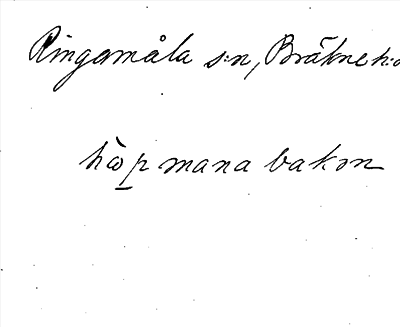 Ringamåla s:n, Bräkne h:d
hòp mana bakon